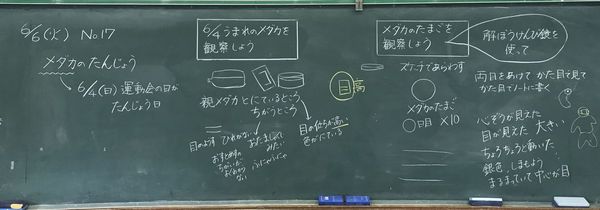 6/6(火) No.17
メダカのたんじょう
6/4(日)運動会の日が
たんじょう日
6/4うまれのメダカを
観察しよう
親メダカとにているところ
ちがうところ
目のようす
ひれがない
おたまじゃくし
みたい
目の位ちが高い
色がにている
高
メダカのたまごを
観察しよう
解ぼうけんび鏡を
使って
スケッチであらわす
メダカのたまご
×10
両目をあけて かた目で見て
かた目でノートに書く
心ぞうが見えた
目が見えた 大きい
ちょろちょろと動いた
銀色 しまもよう
まるまっていて中心が目